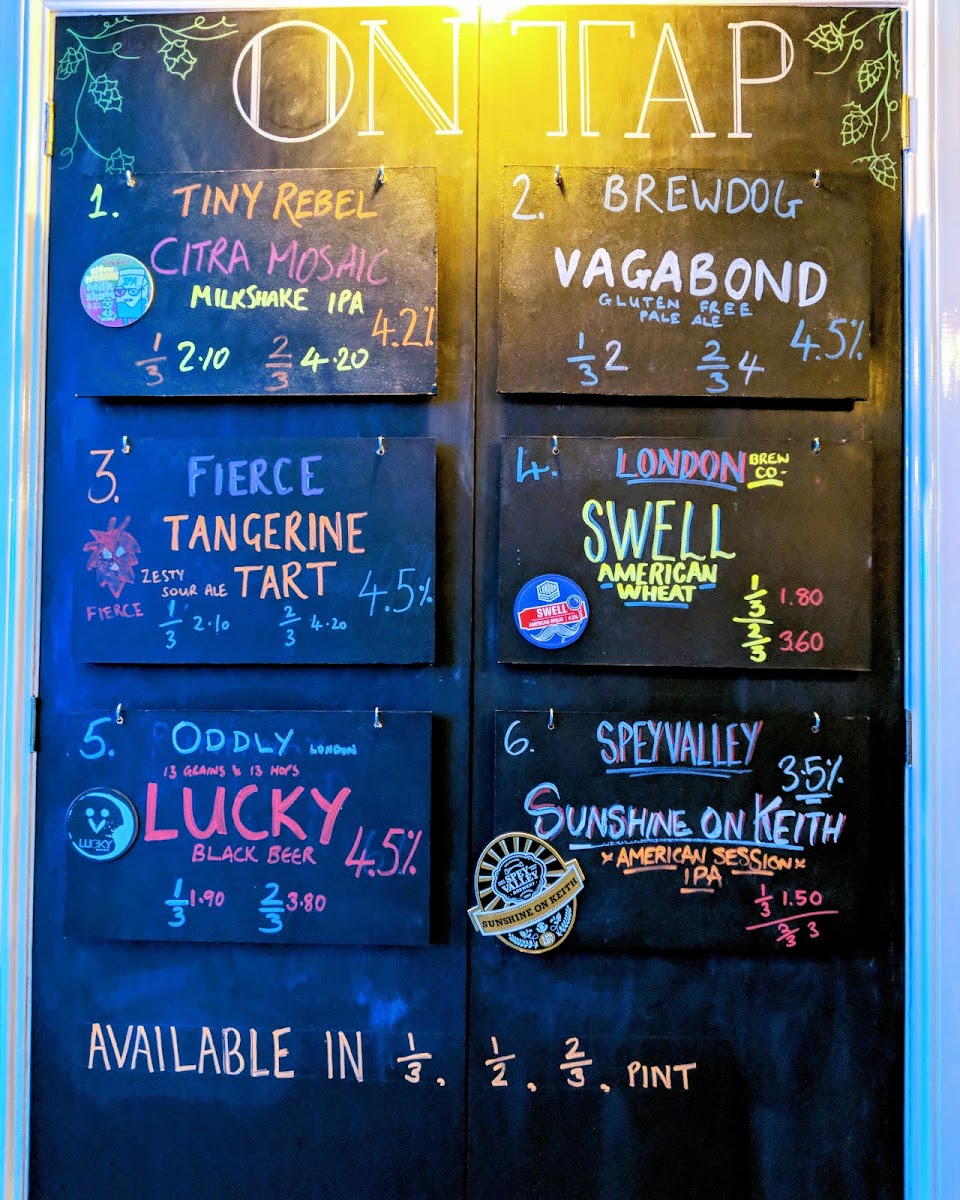 ON TAP
1. TINY REBEL
CITRA MOSAIC
MILKSHAKE IPA
4.2%
1/3 2.10 2/3 4.20
2. BREWDOG
VAGABOND
GLUTEN FREE
PALE ALE
4.5%
1/3 2 2/3 4
3. FIERCE
TANGERINE
TART
ZESTY
SOUR ALE
4.5%
FIERCE
1/3 2.10 2/3 4.20
4. LONDON BREW
CO-
SWELL
AMERICAN
WHEAT
1/3 1.80
2/3 3.60
LONDON
SWELL
AMERICAN WHEAT
5. ODDLY LONDON
13 GRAINS & 13 HOPS
LUCKY
BLACK BEER
4.5%
LUCKY
1/3 1.90 2/3 3.80
6. SPEYVALLEY
3.5%
SUNSHINE ON KEITH
*AMERICAN SESSION*
IPA
1/3 1.50
2/3 3
SPEY
VALLEY
BREWERY
SUNSHINE ON KEITH
AVAILABLE IN 1/3, 1/2, 2/3, PINT